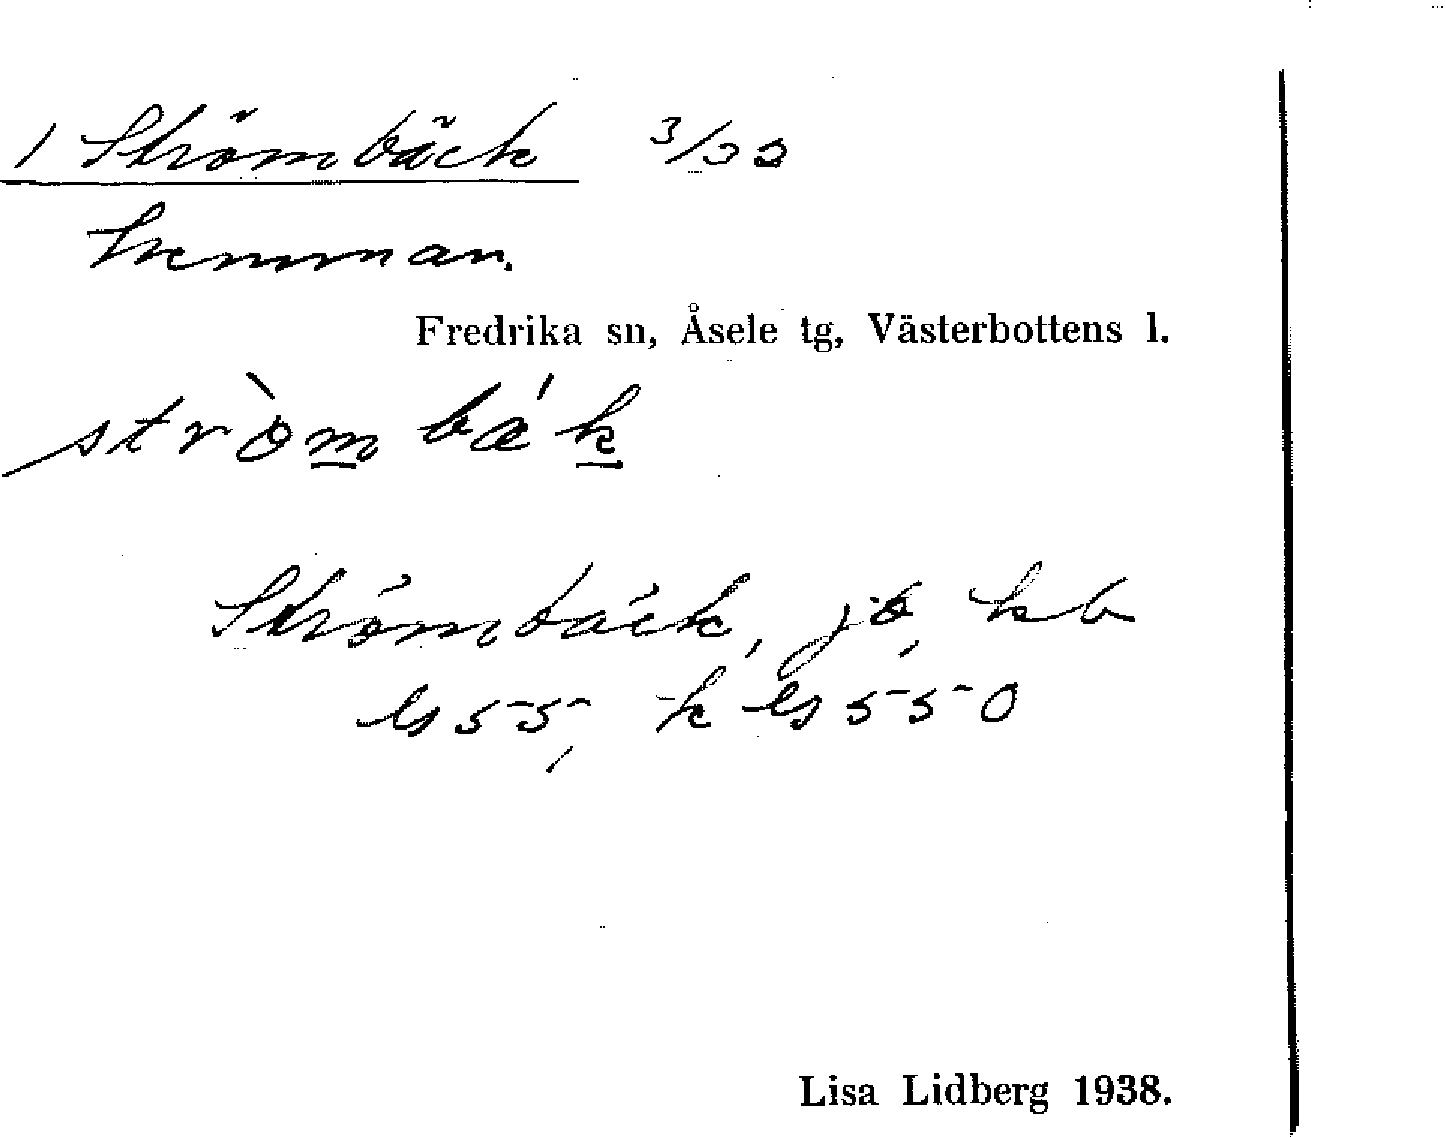 1 Strömbäck 3/32
hemman.
Fredrika sn, Åsele tg, Västerbottens l.
stròm bæ´k
Strömbäck, jb, hb
ls 55, k ls 550
Lisa Lidberg 1938.